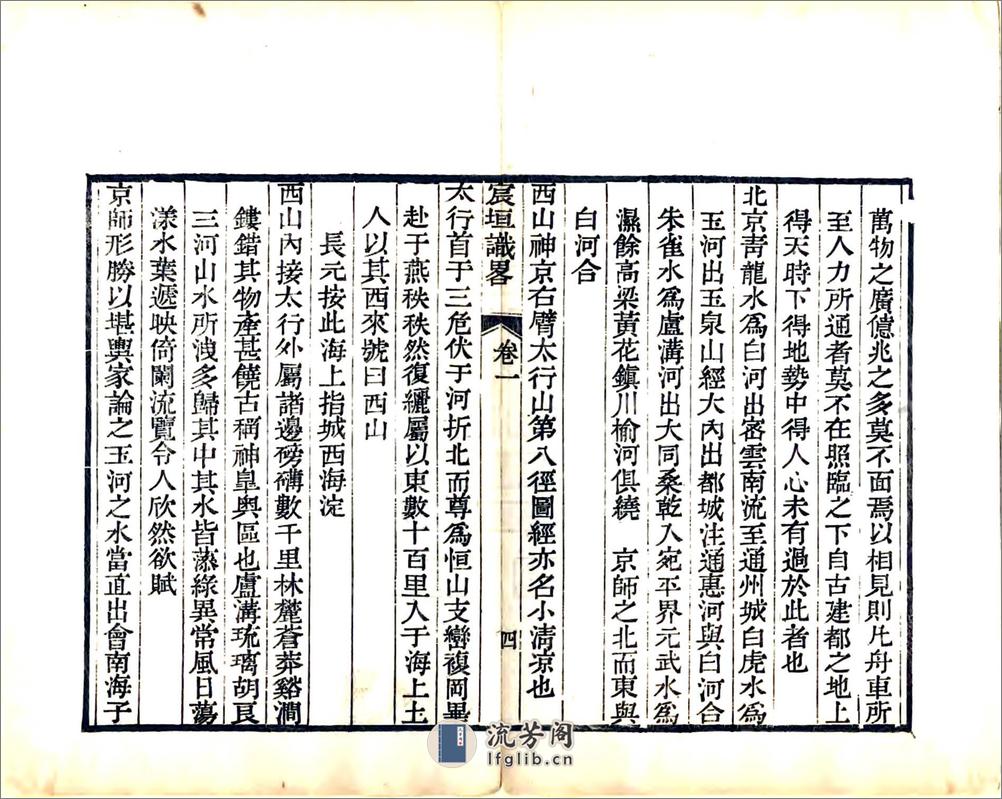 萬物之廣億兆之多莫不面焉以相見則凡舟車所
至人力所通者莫不在照臨之下自古建都之地上
得天時下得地勢中得人心未有過於此者也
北京靑龍水爲白河出密雲南流至通州城白虎水爲
玉河出玉泉山經大內出都城注通惠河與白河合
朱雀水爲盧溝河出大同桑乾入宛平界元武水爲
濕餘高梁黃花鎭川榆河俱繞 京師之北而東與
白河合
西山神京右臂太行山第八徑圖經亦名小清凉也
宸垣識畧 卷一 四
太行首于三危伏于河折北而尊爲恒山支巒複岡畢
赴于燕秩秩然復纚屬以東數十百里入于海上土
人以其西來號曰西山
長元按此海上指城西海淀
西山內接太行外屬諸邊磅礡數千里林麓蒼莽谿澗
鏤錯其物產甚饒古稱神臯奧區也盧溝琉璃胡良
三河山水所洩多歸其中其水皆藻綠異常風日蕩
漾水葉遞映倚闌流覽令人欣然欲賦
京師形勝以堪輿家論之玉河之水當直出會南海子
流芳阁
lfglib.cn